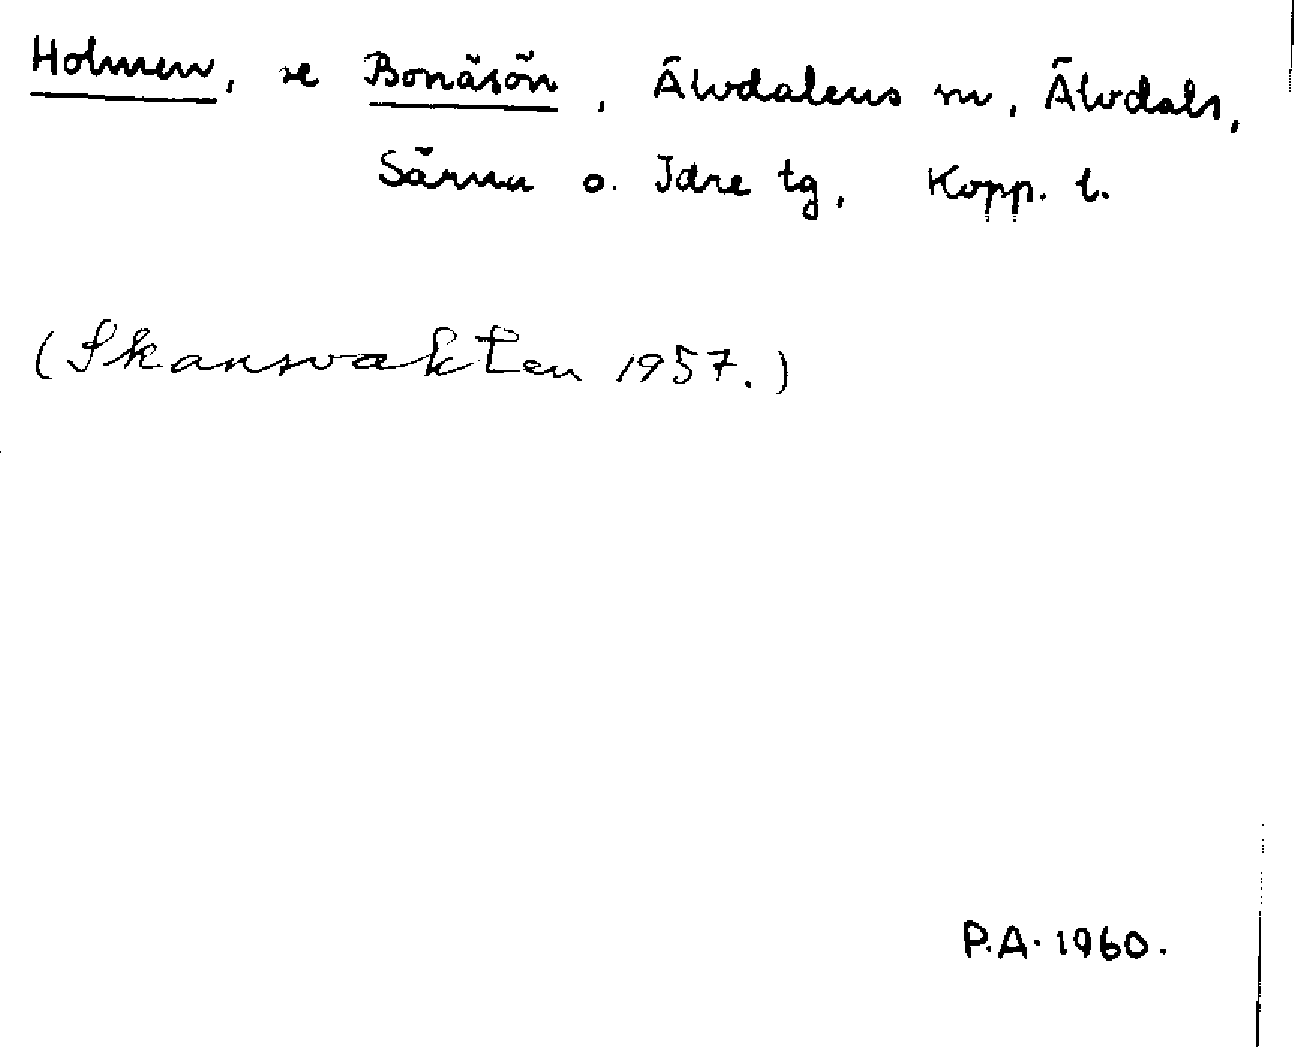 Holmen, se Bonäsön, Älvdalens sn, Älvdals,
Särna o. Idre tg, Kopp. l.
(Skansvakten 1957.)
P.A. 1960.